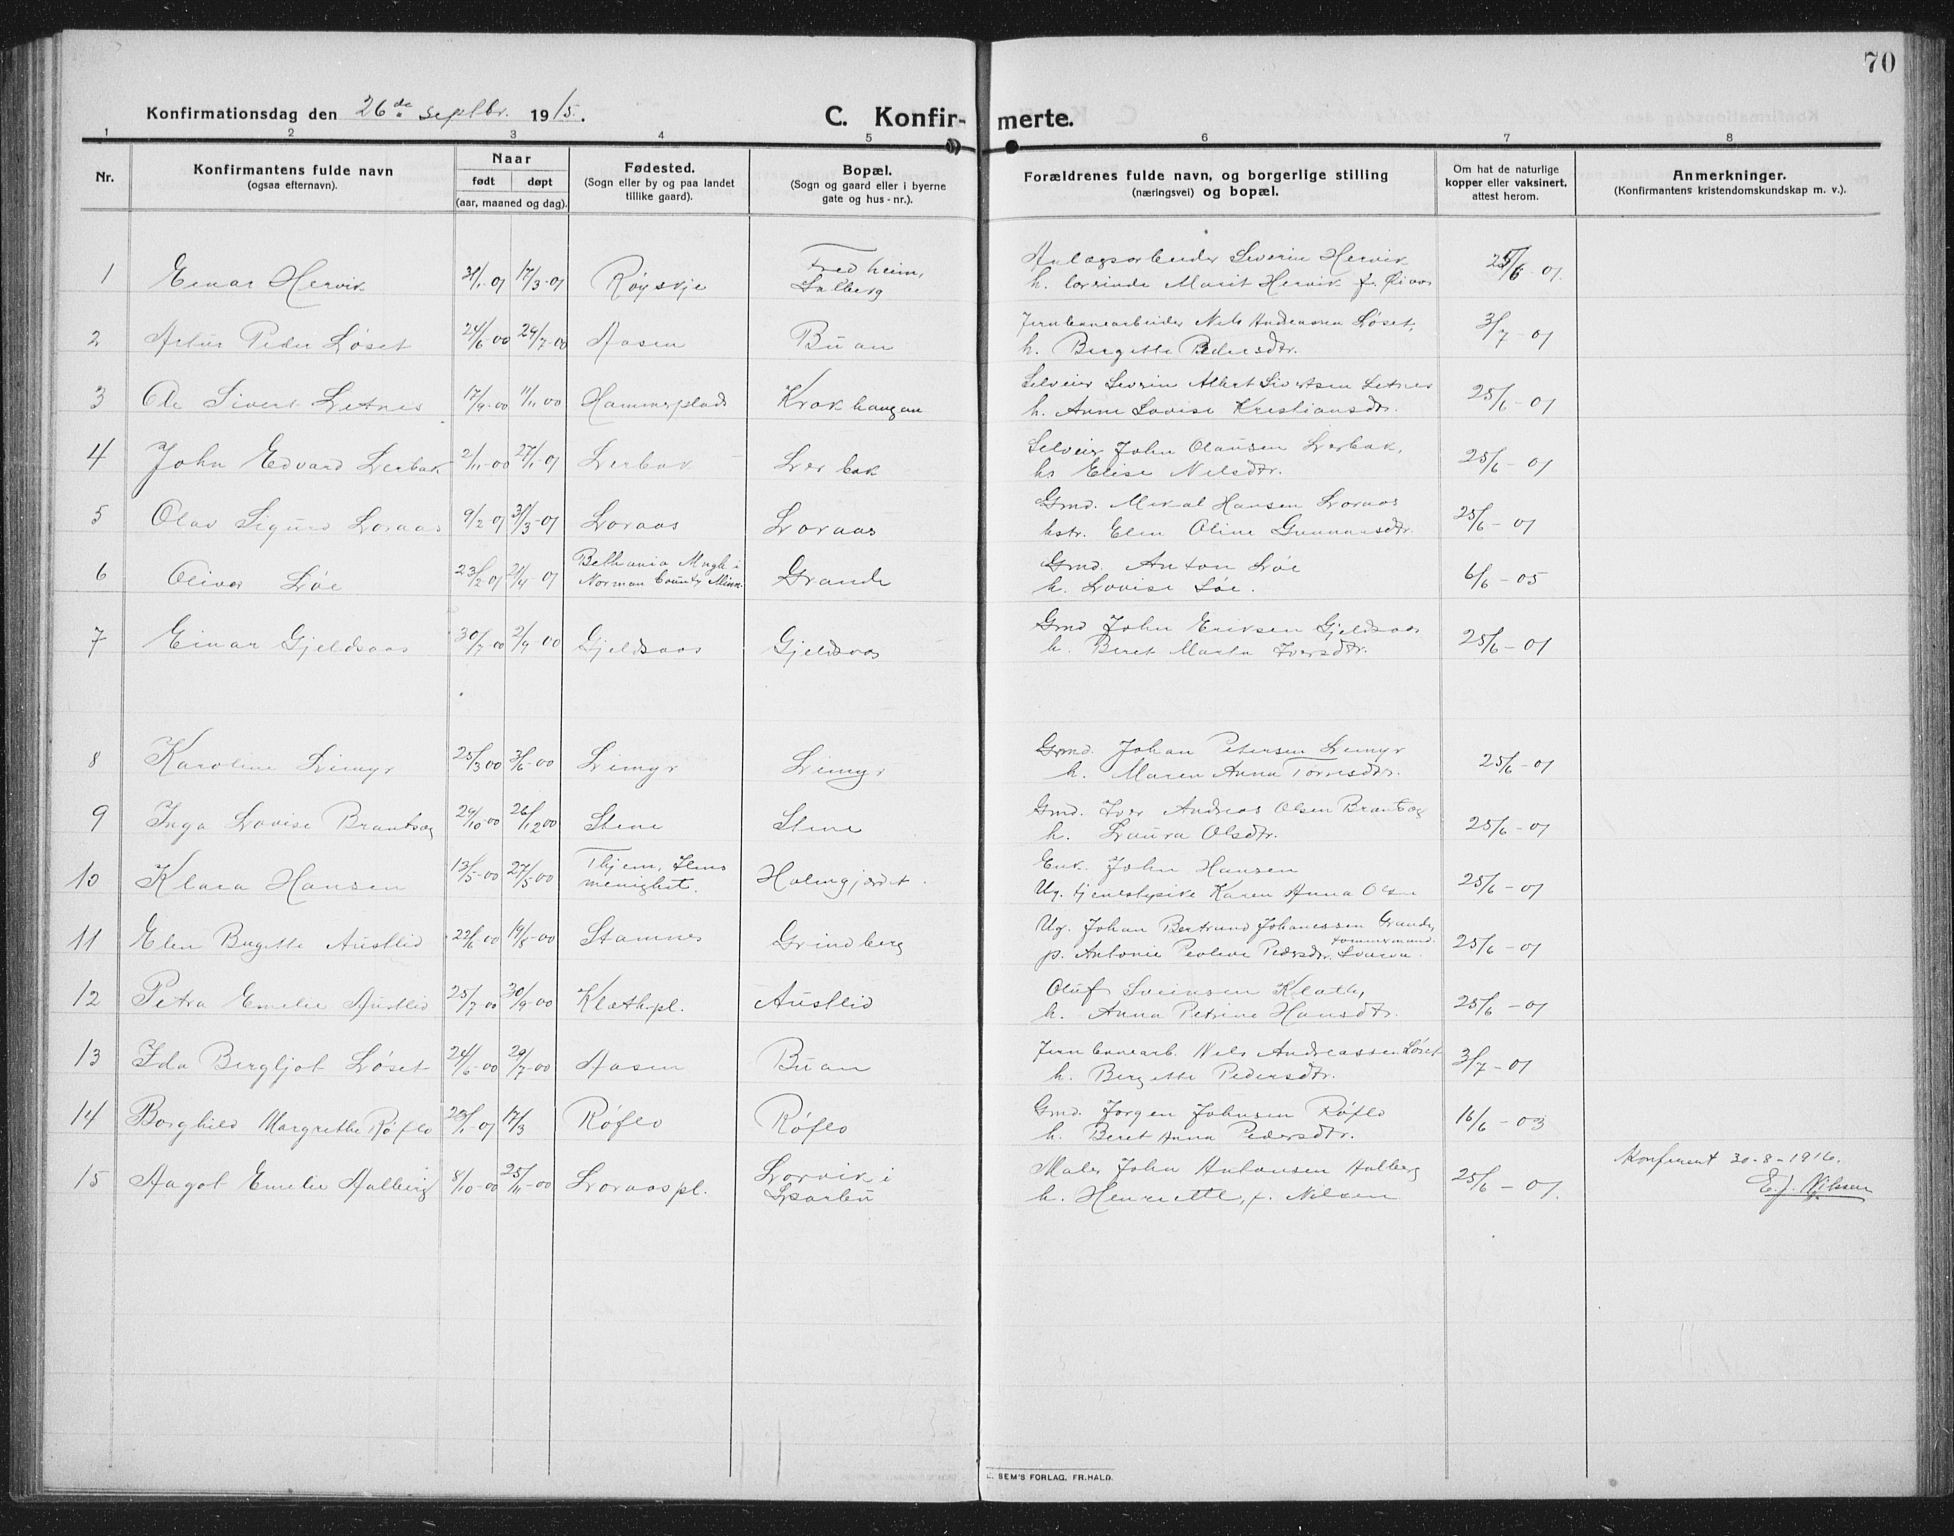 70
Konfirmationsdag den 26de septbr. 1915.
C. Konfirmerte.
1 2 3 4 5 6 7 8
Nr.
Konfirmantens fulde navn
(ogsaa efternavn).
Naar
født døpt
(aar, maaned og dag).
Fødested.
(Sogn eller by og paa landet
tillike gaard).
Bopæl.
(Sogn og gaard eller i byerne
gate og hus-nr.).
Forældrenes fulde navn, og borgerlige stilling
(næringsvei) og bopæl.
Om hat de naturlige
kopper eller vaksinert,
attest herom.
Anmerkninger.
(Konfirmantens kristendomskundskap m. v.).
1 Einar Hervik 31/1-01 17/3-01 Røyskje Fredheim, Salberg Anlægsarbeider Severin Hervik
h. lærerinde Marit Hervik f. 25/6-01
2 Artur Peder Løset 24/6-00 29/7-00 Aasen Buan Jernbanearbeider Nils Andreassen Løset,
h. Bergette Pedersdtr. 3/7-01
3 Ole Sivert Letnes 17/9-00 11/11 00 Hammerplads Krokhaugan Selveier Severin Albert Sivertsen Letnes
h. Anne Lovise Kristiansdtr. 25/6-01
4 John Edvard Lerbak 2/11-00 27/1-01 Lerbak Lerbak Selveier John Olausen Lerbak,
h. Elise Nilsdtr. 25/6-01
5 Olav Sigurd Loraas 9/2 01 31/3-01 Loraas Loraas Grmd. Mikal Hansen Loraas
hstr. Elen Oline Gunnarsdtr. 25/6-01
6 Oliver Løe 23/2-01 21/4-01 Bethania Mngh i
Norman County Minn. Grande Grmd. Anton Løe
h. Lovise Løe. 6/6-05
7 Einar Gjeldsaas 30/7-00 2/9 00 Gjeldsaas Gjeldsaas Grmd John Eriksen Gjeldsaas
h. Beret Marta Iversdtr. 25/6-01
8 Karoline Leimyr 25/3 00 3/6-00 Leimyr Leimyr Grmd. Johan Petersen Leimyr
h. Maren Anna Torresdtr. 25/6-01
9 Inga Lovise Brandtsæg 29/10-00 26/12 00 Stene Stene Gmd. Iver Andreas Olsen Brandtsæg
h. Laura Olsdtr. 25/6-01
10 Klara Hansen 13/5-00 27/5-00 menighet. Holmgjærdet Enk. John Hansen
Ug. tjenestepike Karen Anna Olsen 25/6-01
11 Elen Birgitte Austlid 22/6-00 19/8-00 Stamnes Grindberg Ug. Johan Bertrand Johanessen Grande,
tømmermand.
p. Antonie Peoline Pedersdtr. 25/6-01
12 Petra Emelie Austlid 25/7-00 30/9-00 Klæthpl. Austlid Oluf Sveinsen Klæth,
h. Anna Petrine Hansdtr. 25/6-01
13 Ida Bergljot Løset 24/6-00 29/7-00 Aasen Buan Jernbanearb. Nils Andreassen Løset
h. Bergette Pedersdtr. 3/7-01
14 Borghild Margrethe Røflo 17/3 Røflo Røflo Gmd. Jørgen Johnsen Røflo
h. Beret Anna Pedersdtr. 16/6-03
15 Aagot Emelie Aalberg 8/10-00 25/11-00 Loraaspl. Lorvik i
Sparbu Maler John Antonsen Aalberg
h. Henriette, f. Nilsen 25/6-01. Konfirmert 30-8-1916.
E. J. Nilssen
E. SEM'S FORLAG, FR.HALD.